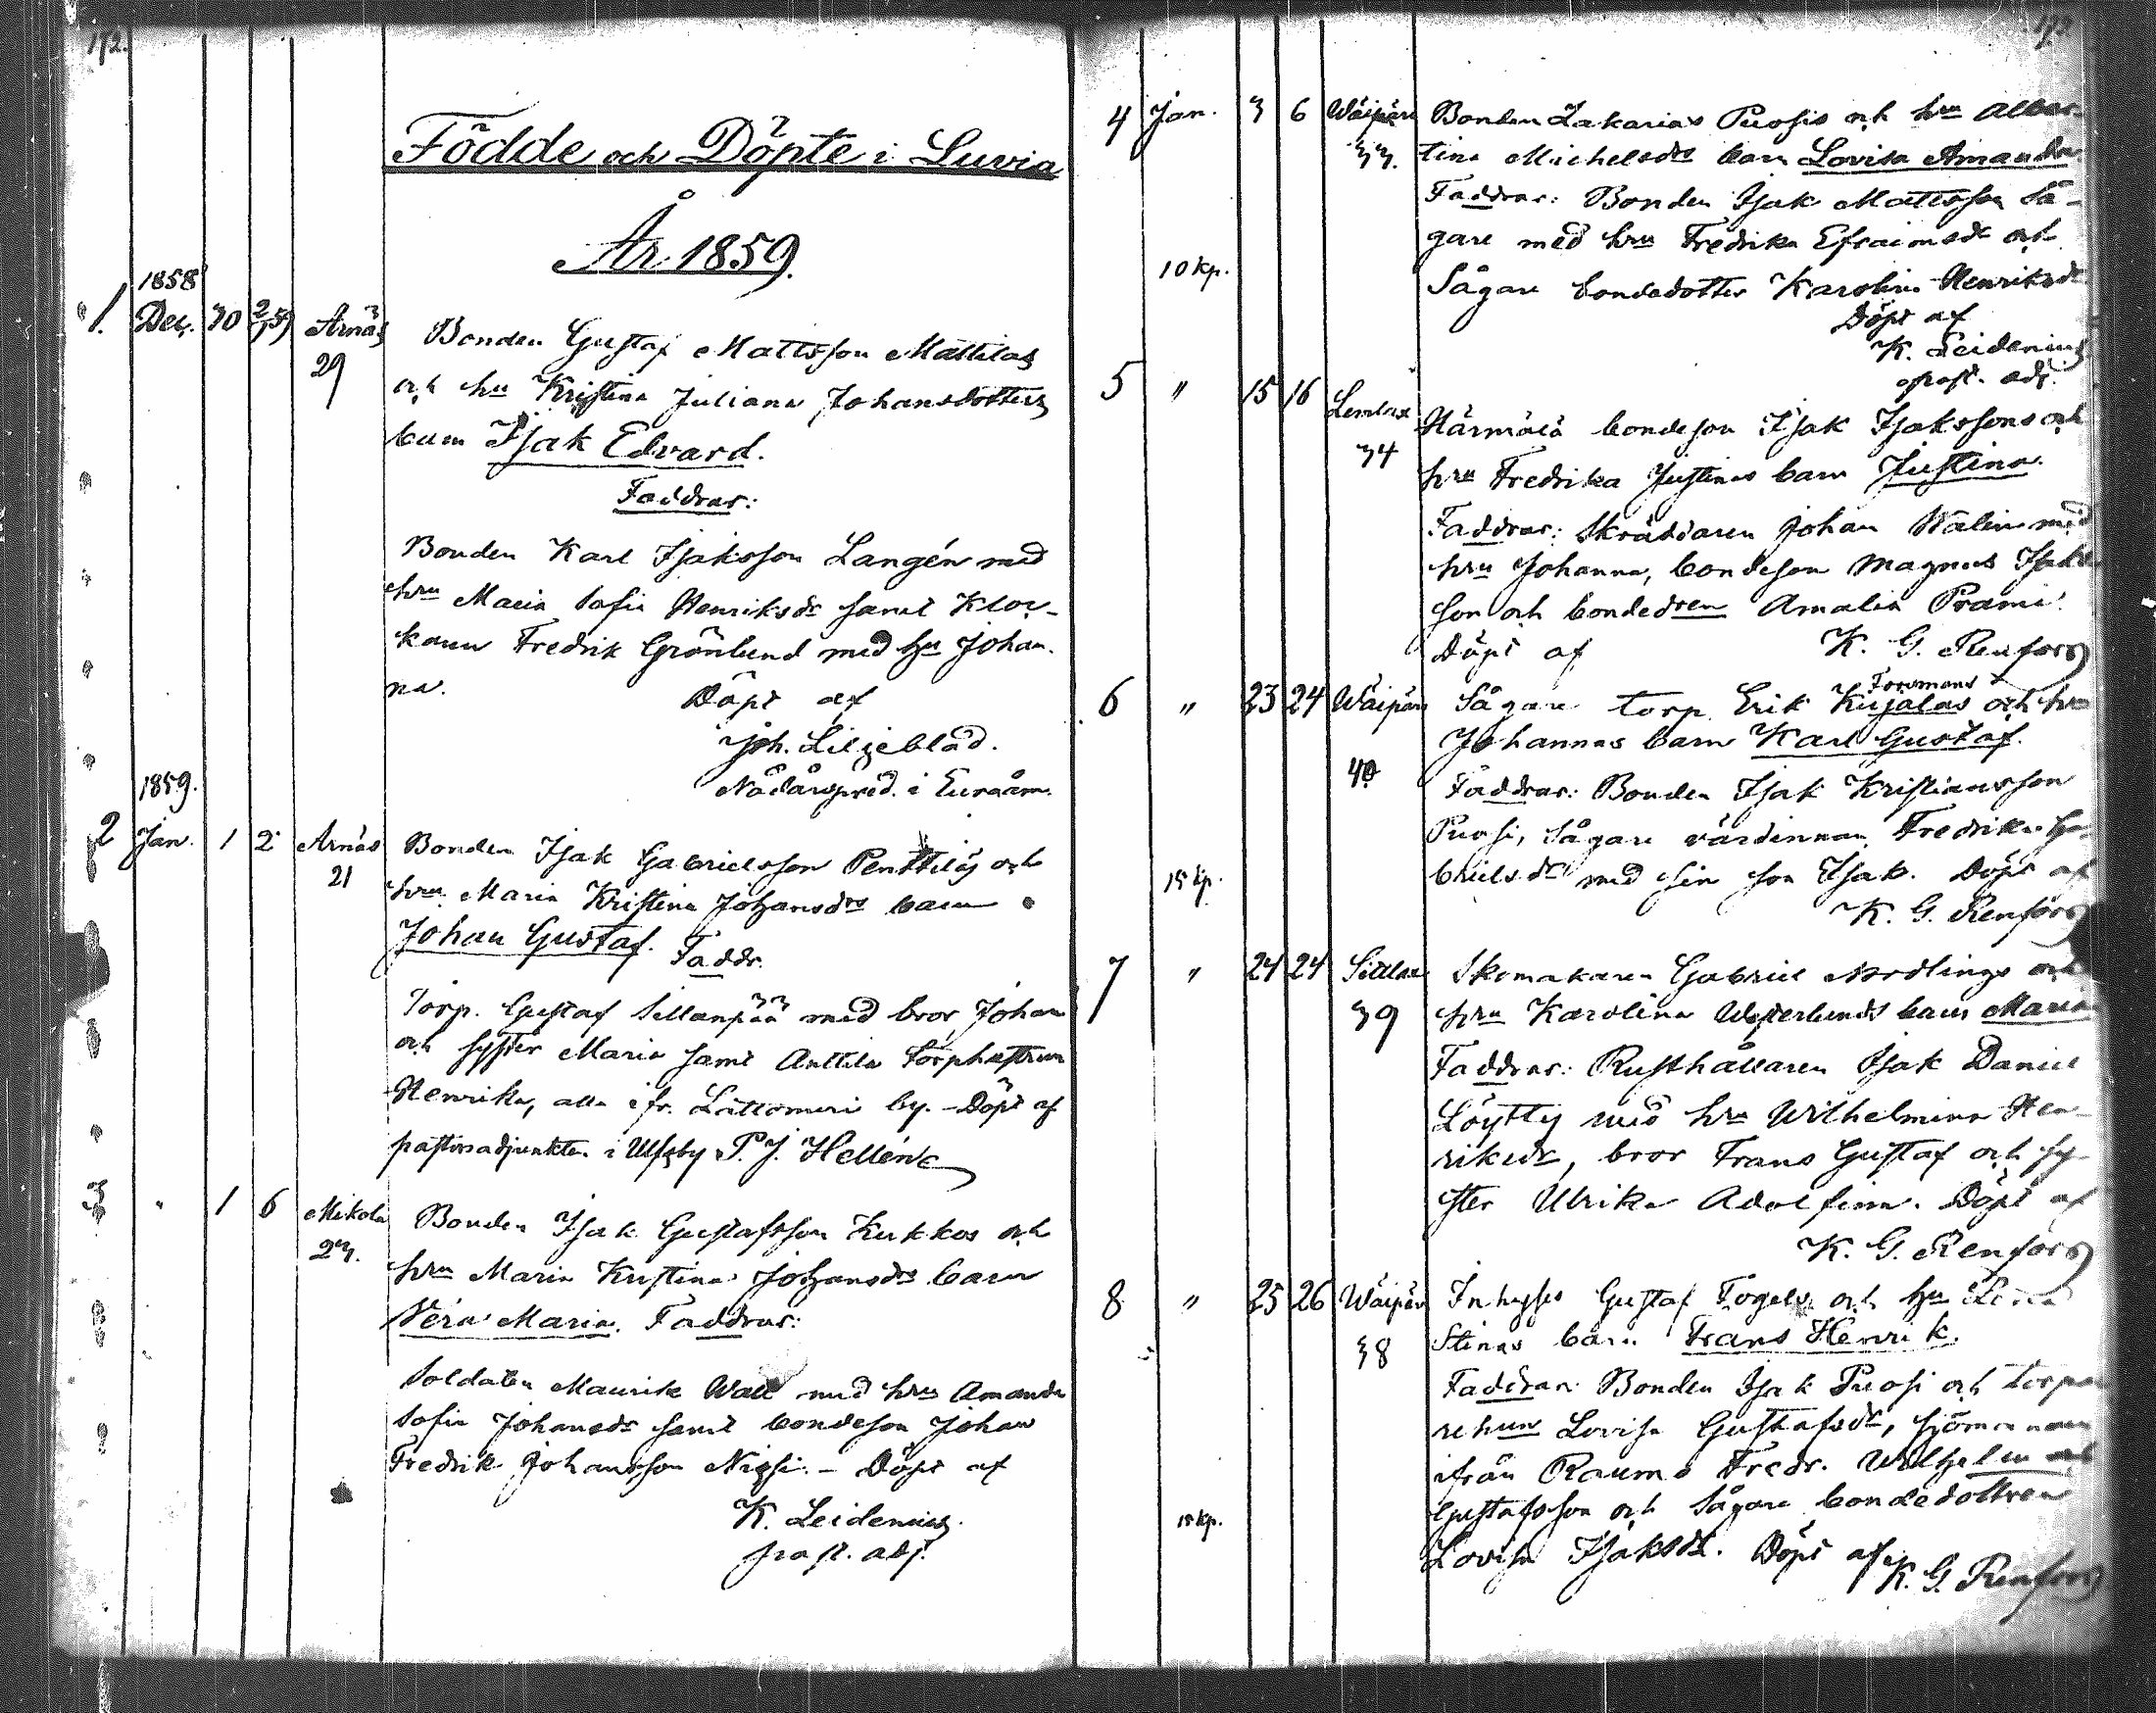 172.
Födde och Döpte i Luvia
År 1859.
1. 1858 Dec. 30 2/1 59 Arnäs 29
Bonden Gustaf Mattsson Mattilas
och hu Kristina Juliana Johansdotters
barn Isak Edvard.
Faddrar:
Bonden Karl Isaksson Langén med
hru Maria Sofia Henriksdr samt Kloc-
karen Fredrik Grönlund med hu Johan-
na.
Döpt af
Joh. Liljeblad.
Nådårspred. i Euraåm.
2 1859. Jan. 1 2 Arnäs 21
Bonden Isak Gabrielsson Penttiläs och
hru Maria Kristina Johansdrs barn
Johan Gustaf. Faddr.
Torp. Gustaf Sillanpää med bror Johan
och syster Maria samt Anttila torphustrun
Henrika, alla ifr. Lattomeri by. - Döpt af
pastorsadjunkten i Ulfsby P. J. Hellén
3 " 1 6 Mikola 23.
Bonden Isak Gustafsson Kukkos och
hru Maria Kristina Johansdrs barn
Vera Maria. Faddrar:
Soldaten Maurits Wall med hru Amanda
Sofia Johansdr samt bondeson Johan
Fredrik Johansson - Döpt af
K. Leidenius.
past. adj.
4 Jan. 3 6 Wäipäri 33.
Bonden Zakarias Puosis och hru Alber-
tina Michelsdrs barn Lovisa Amanda
Faddrar: Bonden Isak Mattsson Så-
gare med hru Fredrika Efraimsdr och
Sågare bondedotter Karolina Henriksdr
10 kp.
Döpt af
K. Leidenius
past. adj.
5 " 15 16 Lemlax 34
Härmälä bondeson Isak Isakssons och
hru Fredrika Justinas barn Justina.
Faddrar: Skräddaren Johan Walin med
hru Johanna, bondeson Magnus Isaks-
son och bondedren Amalia Prami.
Döpt af K. G. Renfors
6 " 23 24 Wäipäri 40
Foremans
Sågare torp. Erik Kujalas och hru
Johannas barn Karl Gustaf.
Faddrar: Bonden Isak Kristiansson
Puosi, Sågare värdinnan Fredrika Ga-
brielsdr med sin son Isak. Döpt af
15 kp.
K. G. Renfors
7 " 24 24 39
Skomakaren Gabriel Nordlings och
hru Karolina Westerlunds barn Maria
Faddrar: Rusthållaren Isak Daniel
Löytty med hru Wilhelmina Hen-
riksdr, bror Frans Gustaf och sy-
ster Ulrika Adolfina. Döpt af
K. G. Renfors
8 " 25 26 Wäipäri 38
Inhyses Gustaf Fogels och hu
Stinas barn Frans Henrik.
Faddrar: Bonden Isak Puosi och torpa-
rehun Lovisa Gustafsdr, sjömannen
ifrån Raumo Fredr. Wilhelm
Gustafsson och Sågare bondedottren
15 kp.
Lovisa Isaksdr. Döpt af K. G. Renfors